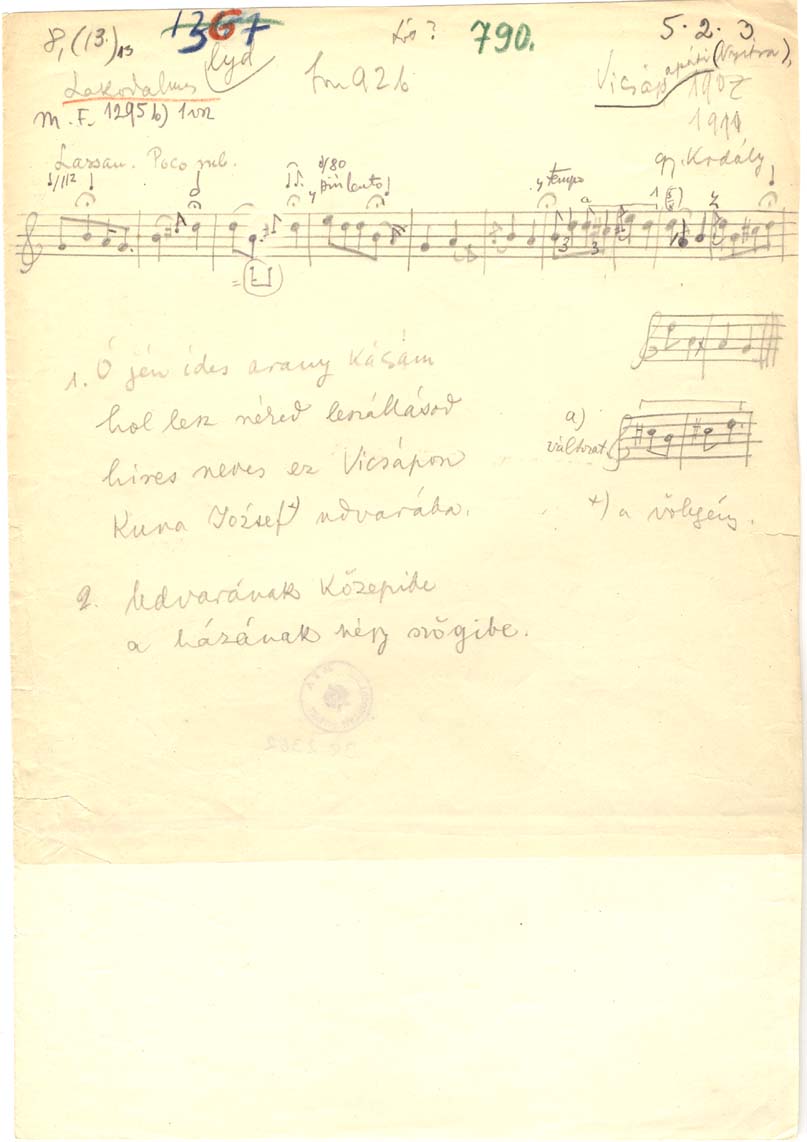 8, (13.) 13
1367
lyd
790.
5. 2. 3.
Lakodalmas
Vicsápapáti (Nyitra),
1907
M. F. 1295 b) 1 vsz
gy. Kodály
Lassan. Poco rub.
più lento
tempo
3
3
1. Ó jén ídes arany Kásám
hol lesz néked leszállásod
híres neves ez Vicsápon
Kuna József +) udvarába.
a)
változat
+) a vőlegény.
2. Udvarának Közepibe
a házának négy szögibe.